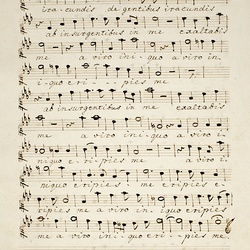 iracundis de gentibus iracundis
ab insurgentibus in me exaltabis
me a viro ini- a viro in
iquo eri- pies me
ab insurgentibus in me exaltabis
me a viro ini- quo a viro i-
niquo e- ri- pies me
niquo eripies me eripies e-
ripies me a viro in iquo eripies
me a viro iniquo eri- pies me